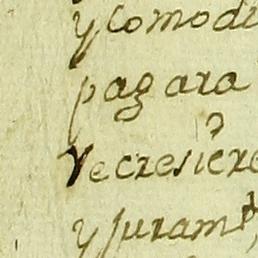 y comodi
pagara
recresiere
y juramto